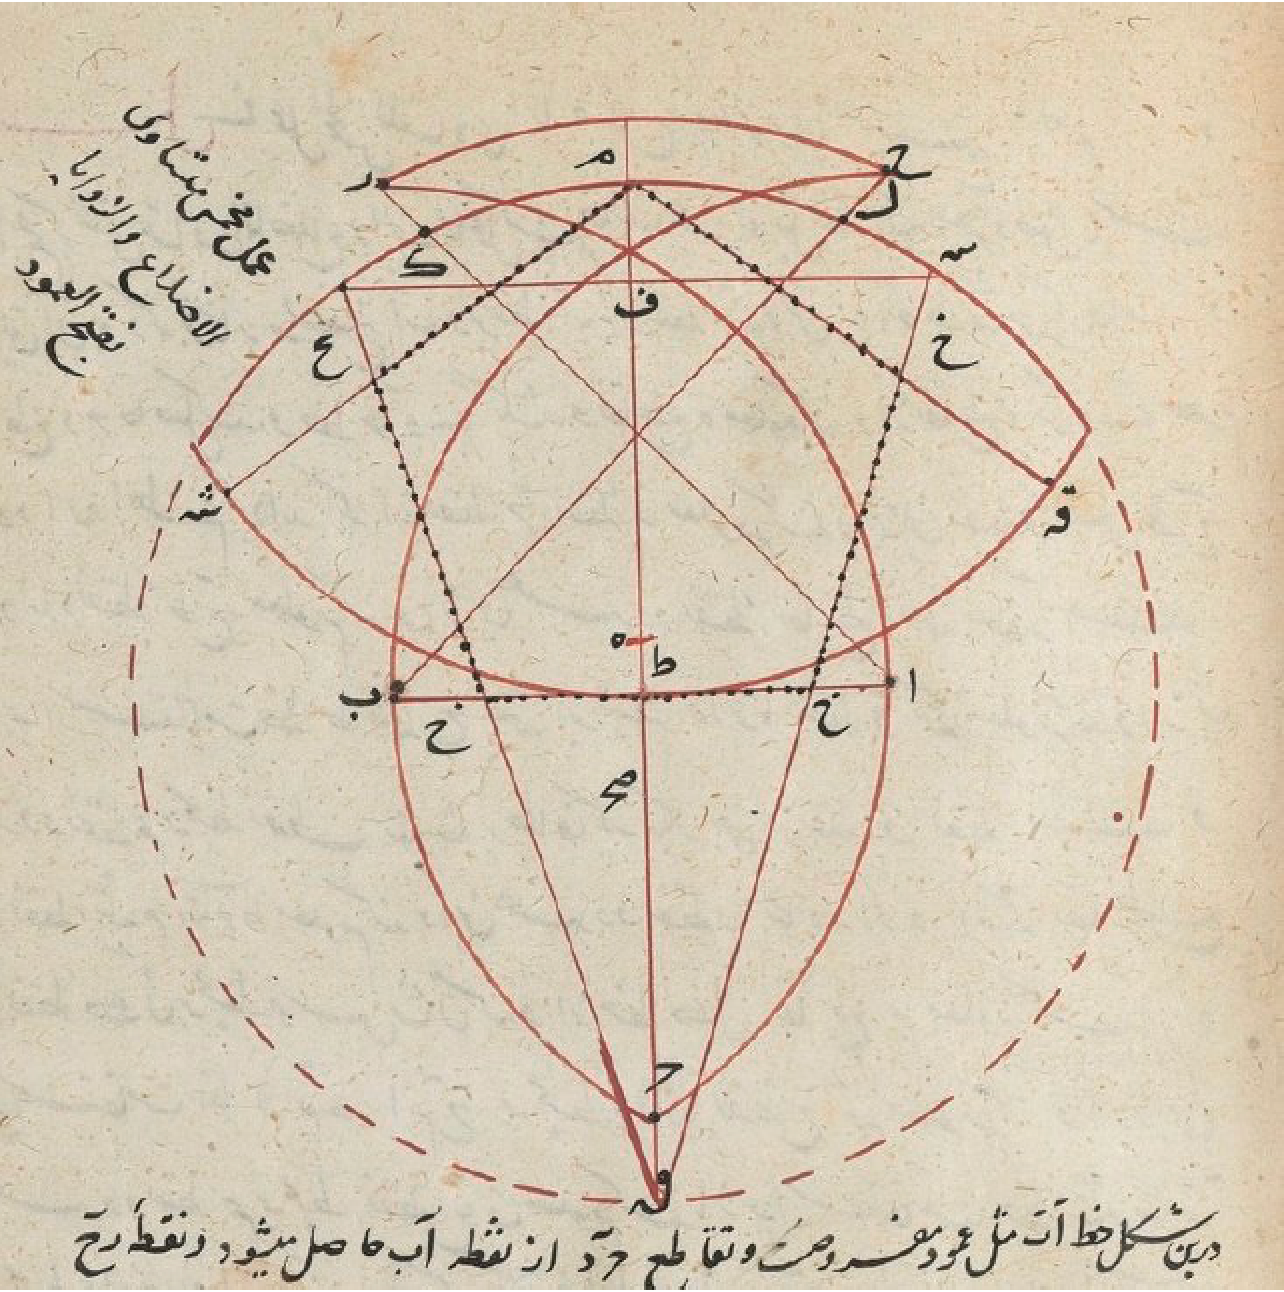 عمل مخمس متساوی
الاضلاع والزوایا
بفتح العمود
م
ح
د
ل
ک
س
ف
ع
خ
ش
ق
ه
ط
ا
ب
خ
خ
ح
ق
درین شکل خط آب مثل عمود مفروضست و تقاطع حرد از نقطه آب حاصل میشود و نقطه رح